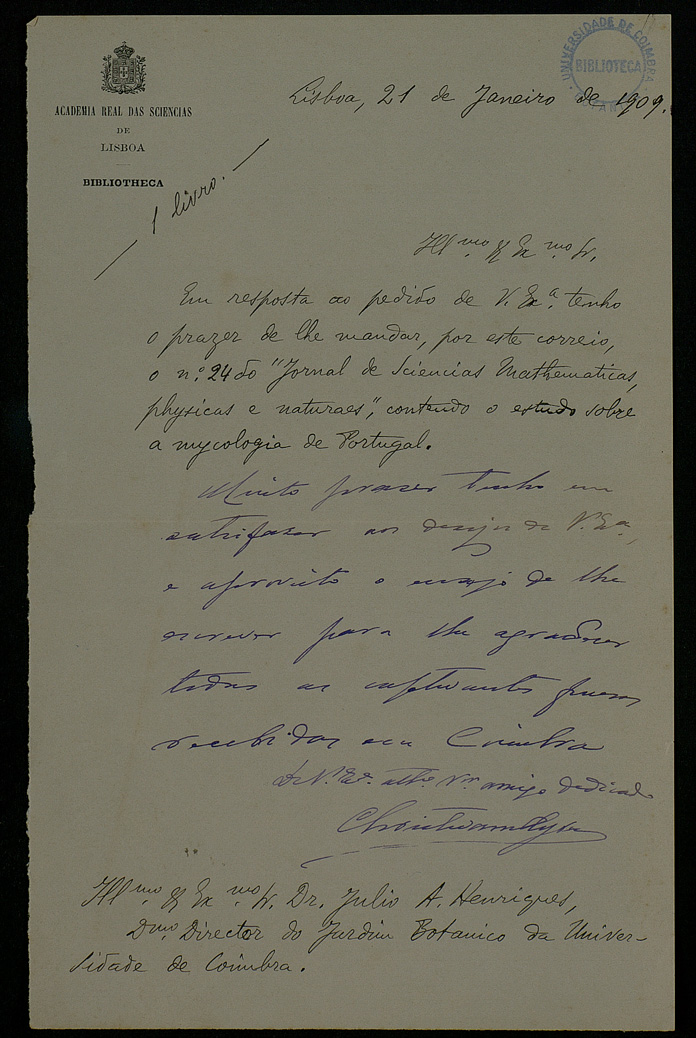 ACADEMIA REAL DAS SCIENCIAS
DE
LISBOA
BIBLIOTHECA
UNIVERSIDADE DE COIMBRA
BIBLIOTECA
Lisboa, 21 de Janeiro de 1909.
1 livro.
Ill.mo e Ex.mo Sr.
Em resposta ao pedido de V. Ex.a tenho
o prazer de lhe mandar, por este correio,
o n.o 24 do "Jornal de Sciencias Mathematicas,
physicas e naturaes", contendo o estudo sobre
a mycologia de Portugal.
Muito prazer tenho em
satisfazer aos desejos de V. Ex.a,
e aproveito o ensejo de lhe
escrever para lhe agradecer
todas as captivantes
recebidas em Coimbra
De V. Ex.a att.o V.or amigo dedicado
Ill.mo e Ex.mo Sr. Dr. Julio A. Henriques,
D.mo Director do Jardim Botanico da Univer-
sidade de Coimbra.